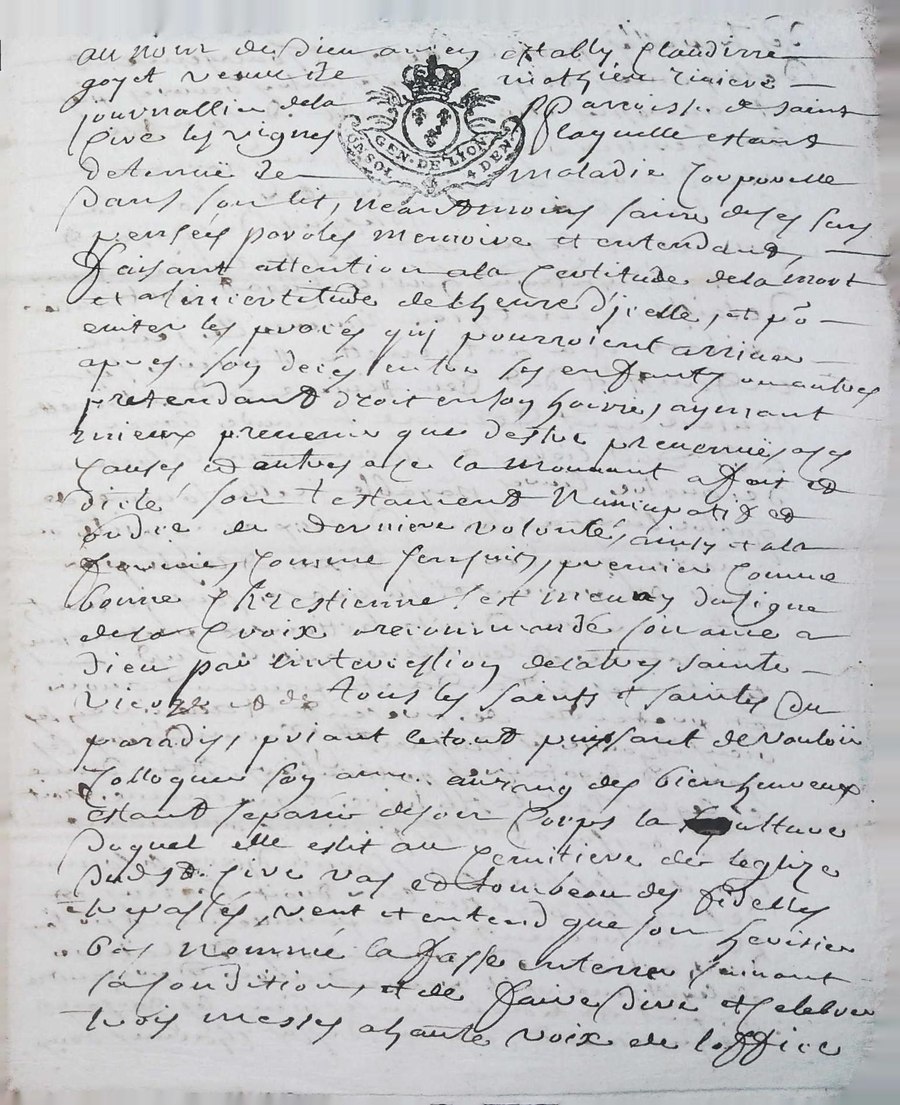 au nom de Dieu amen establÿ Claudinne
goyet veuve de mathieu
journallier de la Parroisse de saint
Cire les vignes laquelle estant
GEN·DE·LION
UN·SOL 4·DEN
detenuë de maladie Corporelle
Dans son lit, neantmoins saine de ses sens
pensées paroles memoire et entendant,
faisant attention a la Certitude de la mort
et a l'incertitude de lheure d'jcelle, et po
eviter les procés quj pourroient arriver
apres son decés entre ses enfants ou autres
pretendant droit en son hoirie, aymant
mieux prevenir que destre prevenuë, a ces
Causes et autres a ce la mouvant a fait et
dicté son testament Nuncupatif et
ordre de derniere volonté, ainsy et a la
forme, Comme sensuit, premier Comme
bonne Chrestienne sest munay du signe
de la Croix a recommandé son ame a
Dieu par lintercession de la tres sainte
vierge et de tous les saints et saintes du
paradis, priant le tout puissant de vouloir
Colloquer son ame au rang des bienheureux
estant separée de son Corps la sepulture
duquel elle eslit au Cemitiere de leglize
dudt St. Cire vas et tombeau des fidelles
trepassés, veut et entend que son heritier
bas nommé la fasse enterrer suivant
sa Condition, et de faire dire et Celebrer
trois messes a haute voix de loffice